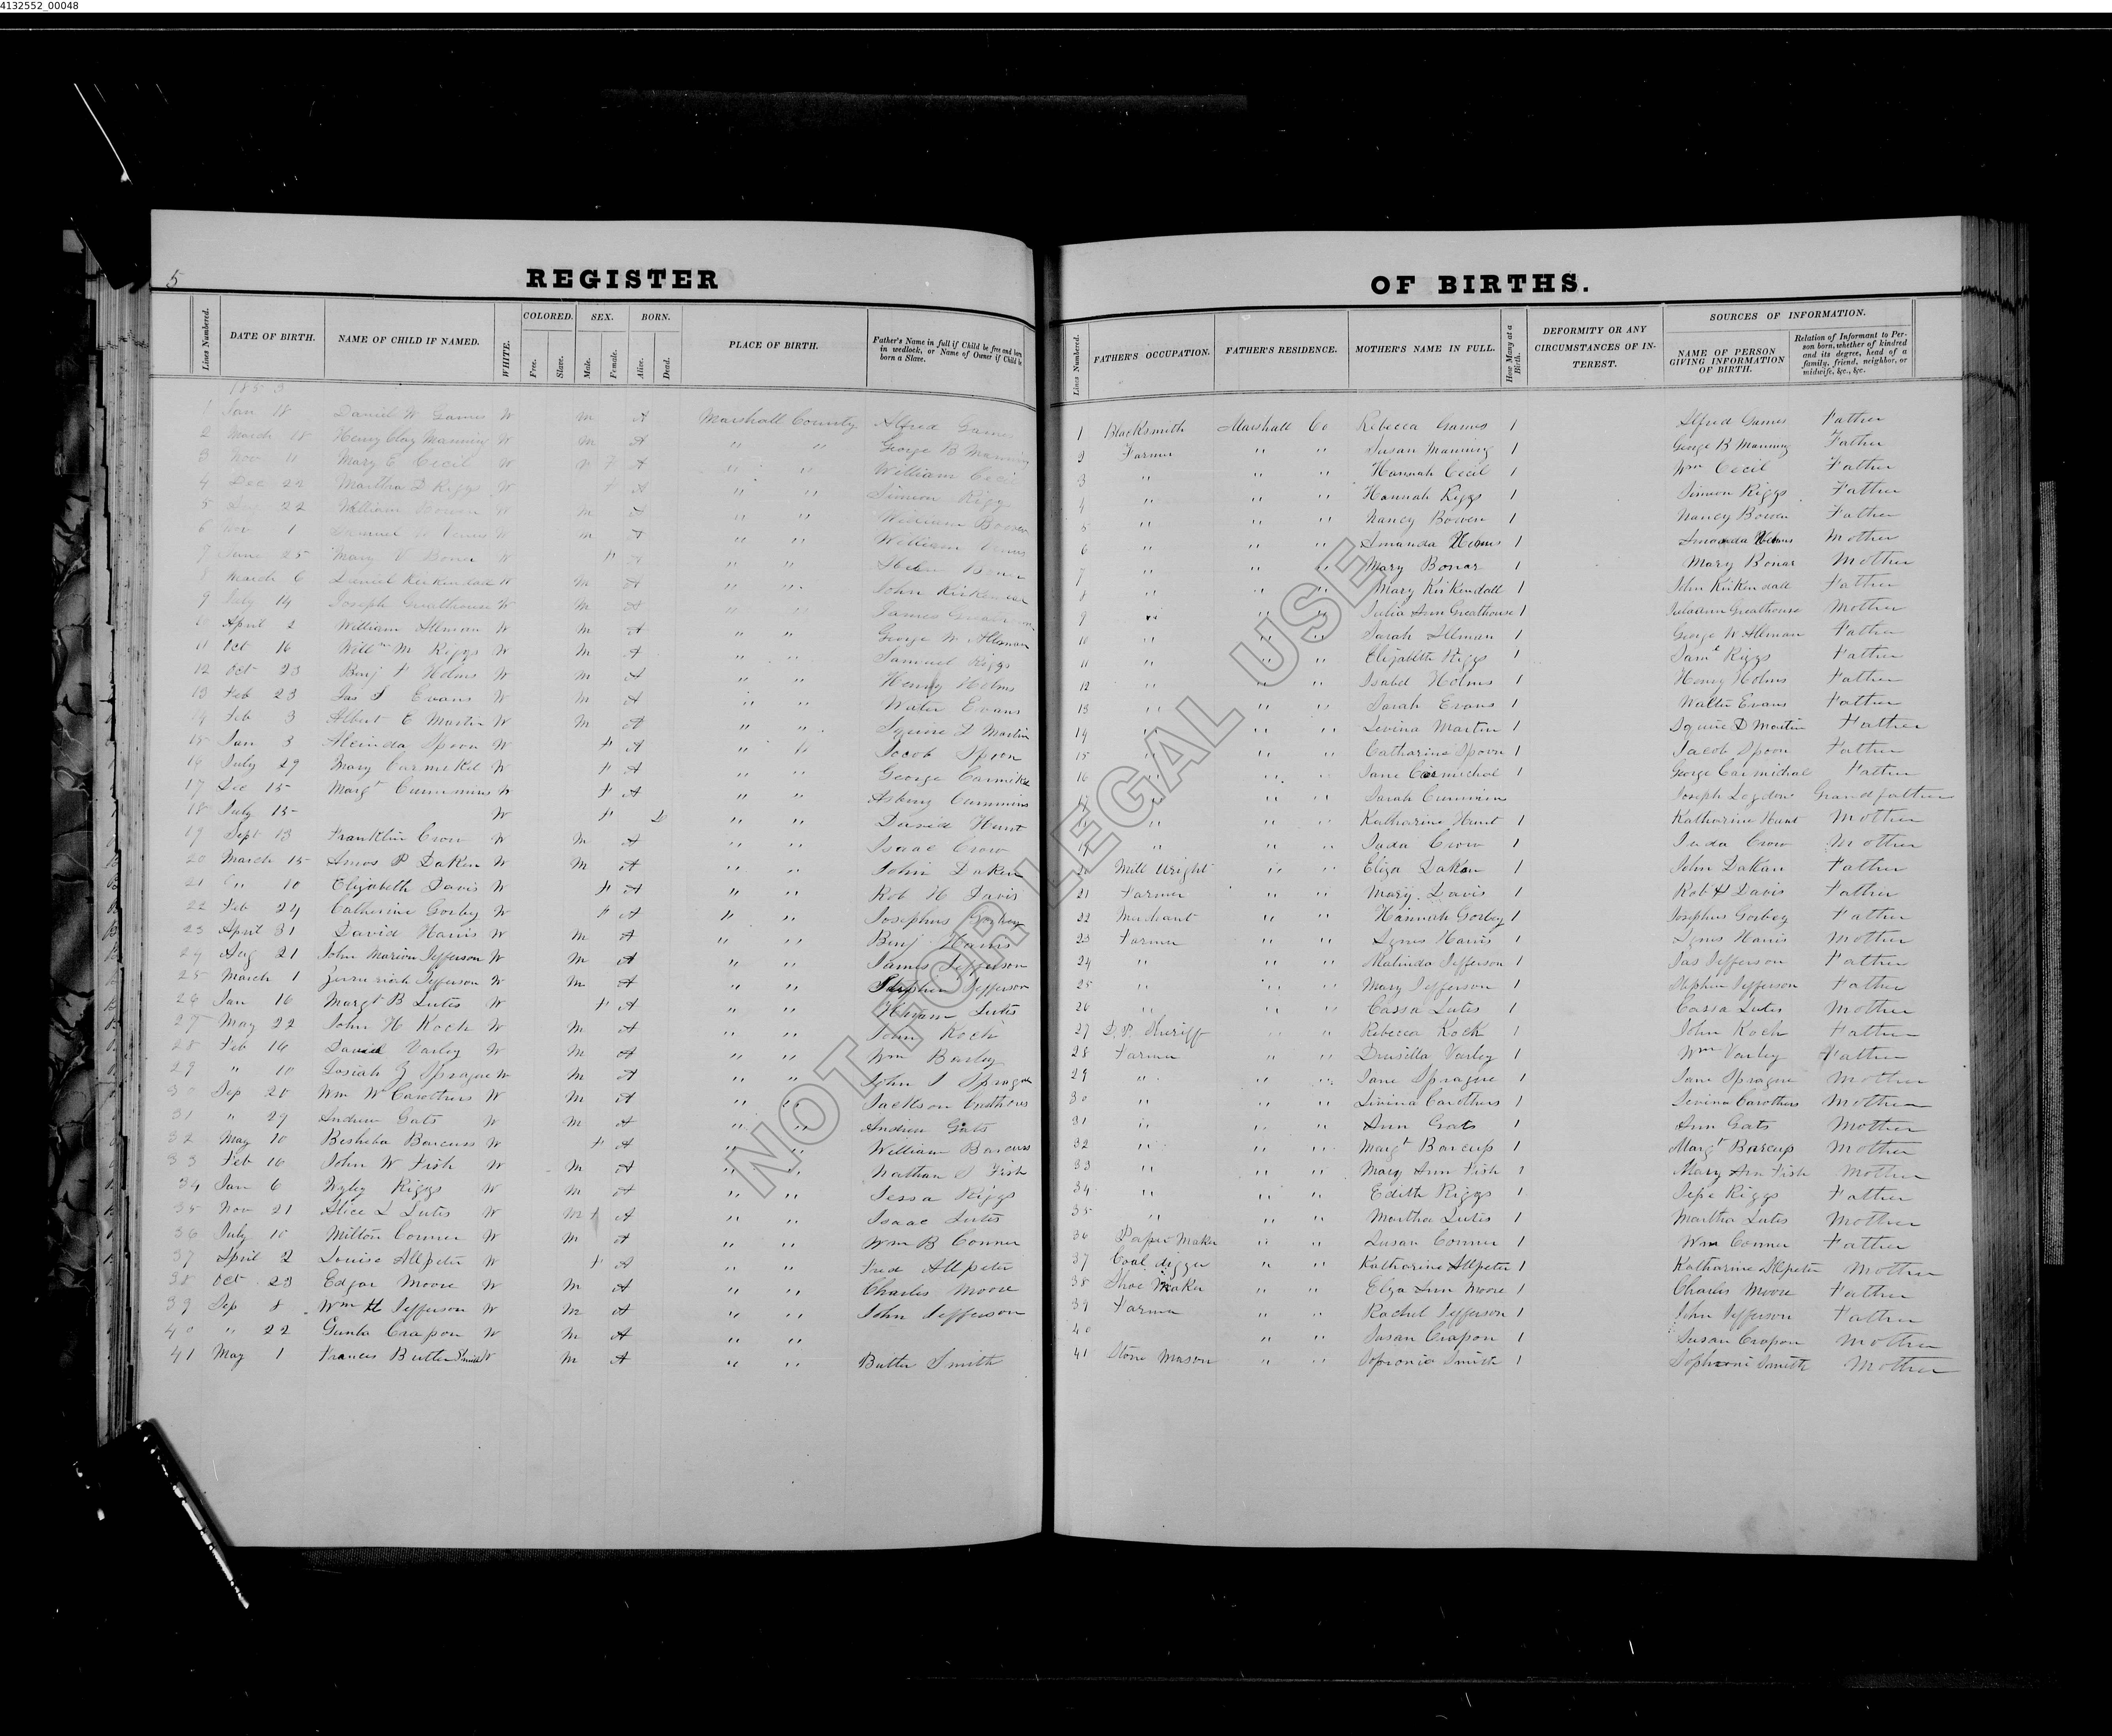 4132552_00048
5
REGISTER OF BIRTHS.
Lines Numbered. DATE OF BIRTH. NAME OF CHILD IF NAMED. WHITE. COLORED. Free. Slave. SEX. Male. Female. BORN. Alive. Dead. PLACE OF BIRTH. Father's Name in full if Child be free and born in wedlock, or Name of Owner if Child be born a Slave.
Lines Numbered. FATHER'S OCCUPATION. FATHER'S RESIDENCE. MOTHER'S NAME IN FULL. How Many at a Birth. DEFORMITY OR ANY CIRCUMSTANCES OF INTEREST. SOURCES OF INFORMATION. NAME OF PERSON GIVING INFORMATION OF BIRTH. Relation of Informant to Person born, whether of kindred and its degree, head of a family, friend, neighbor, or midwife, &c., &c.
1853
1 Jan 18 Daniel W Games W M A Marshall County Alfred Games 1 Blacksmith Marshall Co Rebecca Games 1 Alfred Games Father
2 March 18 Henry Clay Manning W M A " " George B Manning 2 Farmer " " Susan Manning 1 George B Manning Father
3 Nov 11 Mary E Cecil W F A " " William Cecil 3 " " " Hannah Cecil 1 Wm Cecil Father
4 Dec 22 Martha D Riggs W F A " " Simion Riggs 4 " " " Hannah Riggs 1 Simion Riggs Father
5 22 William Bowen W M A " " William Bowen 5 " " " Nancy Bowen 1 Nancy Bowen Father
6 Nov 1 Samuel W M A " " William 6 " " " Amanda 1 Amanda Mother
7 June 25 Mary V Bonar W F A " " Bonar 7 " " " Mary Bonar 1 Mary Bonar Mother
8 March 6 Daniel Kirkendall W M A " " John Kirkendall 8 " " " Mary Kirkendall 1 John Kirkendall Father
9 July 14 Joseph Greathouse W M A " " James Greathouse 9 " " " Julia Ann Greathouse 1 Juliaann Greathouse Mother
April 2 William Allman W M A " " George W Allman 10 " " " Sarah Allman 1 George W Allman Father
11 Oct 16 Willm M Riggs W M A " " Samuel Riggs 11 " " " Elizabeth Riggs 1 Saml Riggs Father
12 Oct 23 Benj F Holms W M A " " Henry Holms 12 " " " Isabel Holms 1 Henry Holms Father
13 Feb 23 Jas S Evans W M A " " Walter Evans 13 " " " Sarah Evans 1 Walter Evans Father
14 Feb 3 Albert E Martin W M A " " Squire D Martin 14 " " " Levina Martin 1 Squire D Martin Father
15 Jan 3 Alcinda Spoon W F A " " Jacob Spoon 15 " " " Catharine Spoon 1 Jacob Spoon Father
16 July 29 Mary Carmikel W F A " " George Carmikel 16 " " " Jane Carmichal 1 George Carmichal Father
17 Dec 15 Margt Cummins W F A " " Asbury Cummins 17 " " " Sarah Cummins Joseph Logdon Grandfather
18 July 15 W F D " " David Hunt " " " Katharine Hunt 1 Katharine Hunt Mother
19 Sept 13 Franklin Crow W M A " " Isaac Crow 19 " " " Juda Crow 1 Juda Crow Mother
20 March 15 Amos P Daken W M A " " John Daken 20 Mill Wright " " Eliza Dakan 1 John Dakan Father
21 " 10 Elizabeth Davis W F A " " Rob H Davis 21 Farmer " " Mary Davis 1 Rob H Davis Father
22 Feb 24 Catherine Gorby W F A " " Josephus Gorbey 22 Merchant " " Hannah Gorbey 1 Josephus Gorbey Father
23 April 31 David Harris W M A " " Benj Harris 23 Farmer " " Agnes Harris 1 Agnes Harris Mother
24 Aug 21 John Marion Jefferson W M A " " James Jefferson 24 " " " Malinda Jefferson 1 Jas Jefferson Father
25 March 1 Jefferson W M A " " Stephen Jefferson 25 " " " Mary Jefferson 1 Stephen Jefferson Father
26 Jan 16 Margt B Lutes W F A " " Hiram Lutes 26 " " " Cassa Lutes 1 Cassa Lutes Mother
27 May 22 John H Koch W M A " " John Koch 27 D.P. Sheriff " " Rebecca Koch 1 John Koch Father
28 Feb 14 David Varley W M A " " Wm Barley 28 Farmer " " Drusilla Varley 1 Wm Varley Father
29 " 10 Josiah Z Sprague W M A " " John S Sprague 29 " " " Jane Sprague 1 Jane Sprague Mother
30 Sep 20 Wm W Carothers W M A " " Jackson Carothers 30 " " " Levina Carothers 1 Levina Carothers Mother
31 " 27 Andrew Gats W M A " " Andrew Gats 31 " " " Ann Gats 1 Ann Gats Mother
32 May 10 Besheba Barcuss W F A " " William Barcuss 32 " " " Margt Barcup 1 Margt Barcup Mother
33 Feb 16 John W Fish W M A " " Nathan S Fish 33 " " " Mary Ann Fish 1 Mary Ann Fish Mother
34 Jan 6 Wyley Riggs W M A " " Jessa Riggs 34 " " " Edith Riggs 1 Jesse Riggs Father
35 Nov 21 Alice L Lutes W M F A " " Isaac Lutes 35 " " " Martha Lutes 1 Martha Lutes Mother
36 July 10 Milton Conner W M A " " Wm B Conner 36 Paper Maker " " Susan Conner 1 Wm Conner Father
37 April 2 Louise Allpeter W F A " " Fred Allpeter 37 Coal digger " " Katharine Allpeter 1 Katharine Allpeter Mother
38 Oct 23 Edgar Moore W M A " " Charles Moore 38 Shoe Maker " " Elza Ann Moore 1 Charles Moore Father
39 Sep 8 Wm H Jefferson W M A " " John Jefferson 39 Farmer " " Rachel Jefferson 1 John Jefferson Father
40 " 22 Gunta Crapon W M A " " 40 " " Susan Crapon 1 Susan Crapon Mother
41 May 1 Francis Butler Smith W M A " " Butler Smith 41 Stone Mason " " Sopronia Smith 1 Smith Mother
NOT FOR LEGAL USE